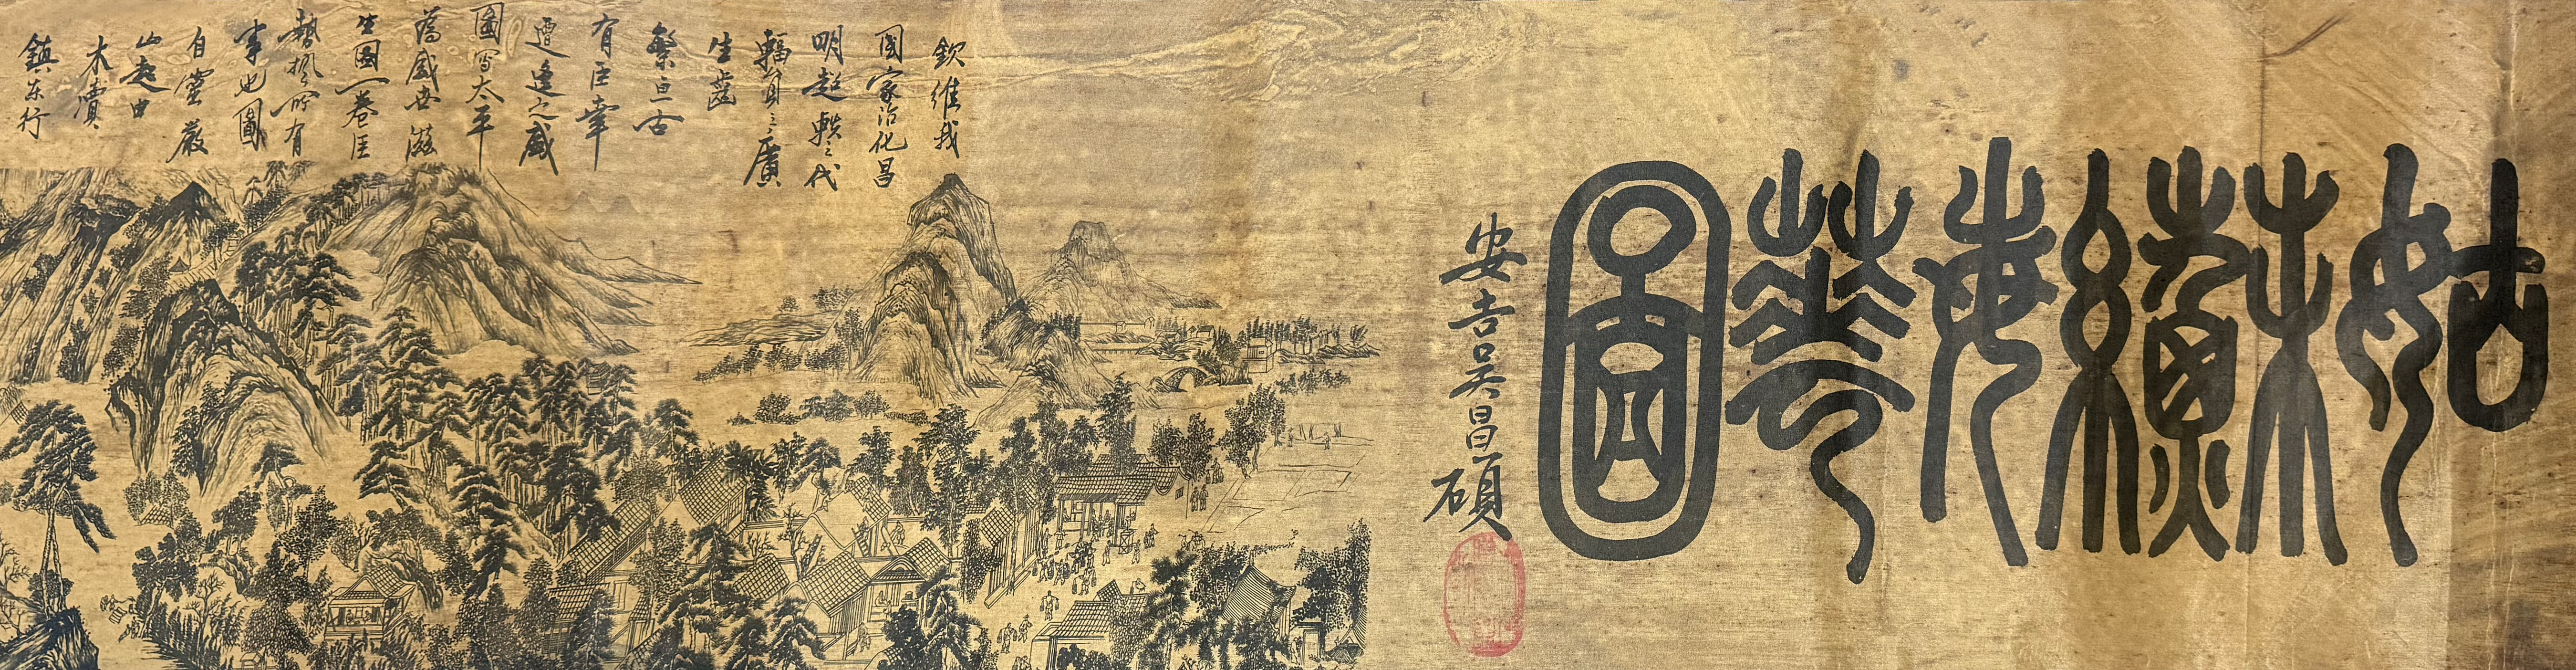 姑穌緐華圖
安吉吳昌碩
欽維我
國家治化昌
明超軼三代
輻員之廣
生齒
繁亘古
有臣幸
遭逢之盛
圖寫太平
為盛世滋
生圖一卷臣
所有
事也圖
自靈巖
山起由
木瀆
鎮东行